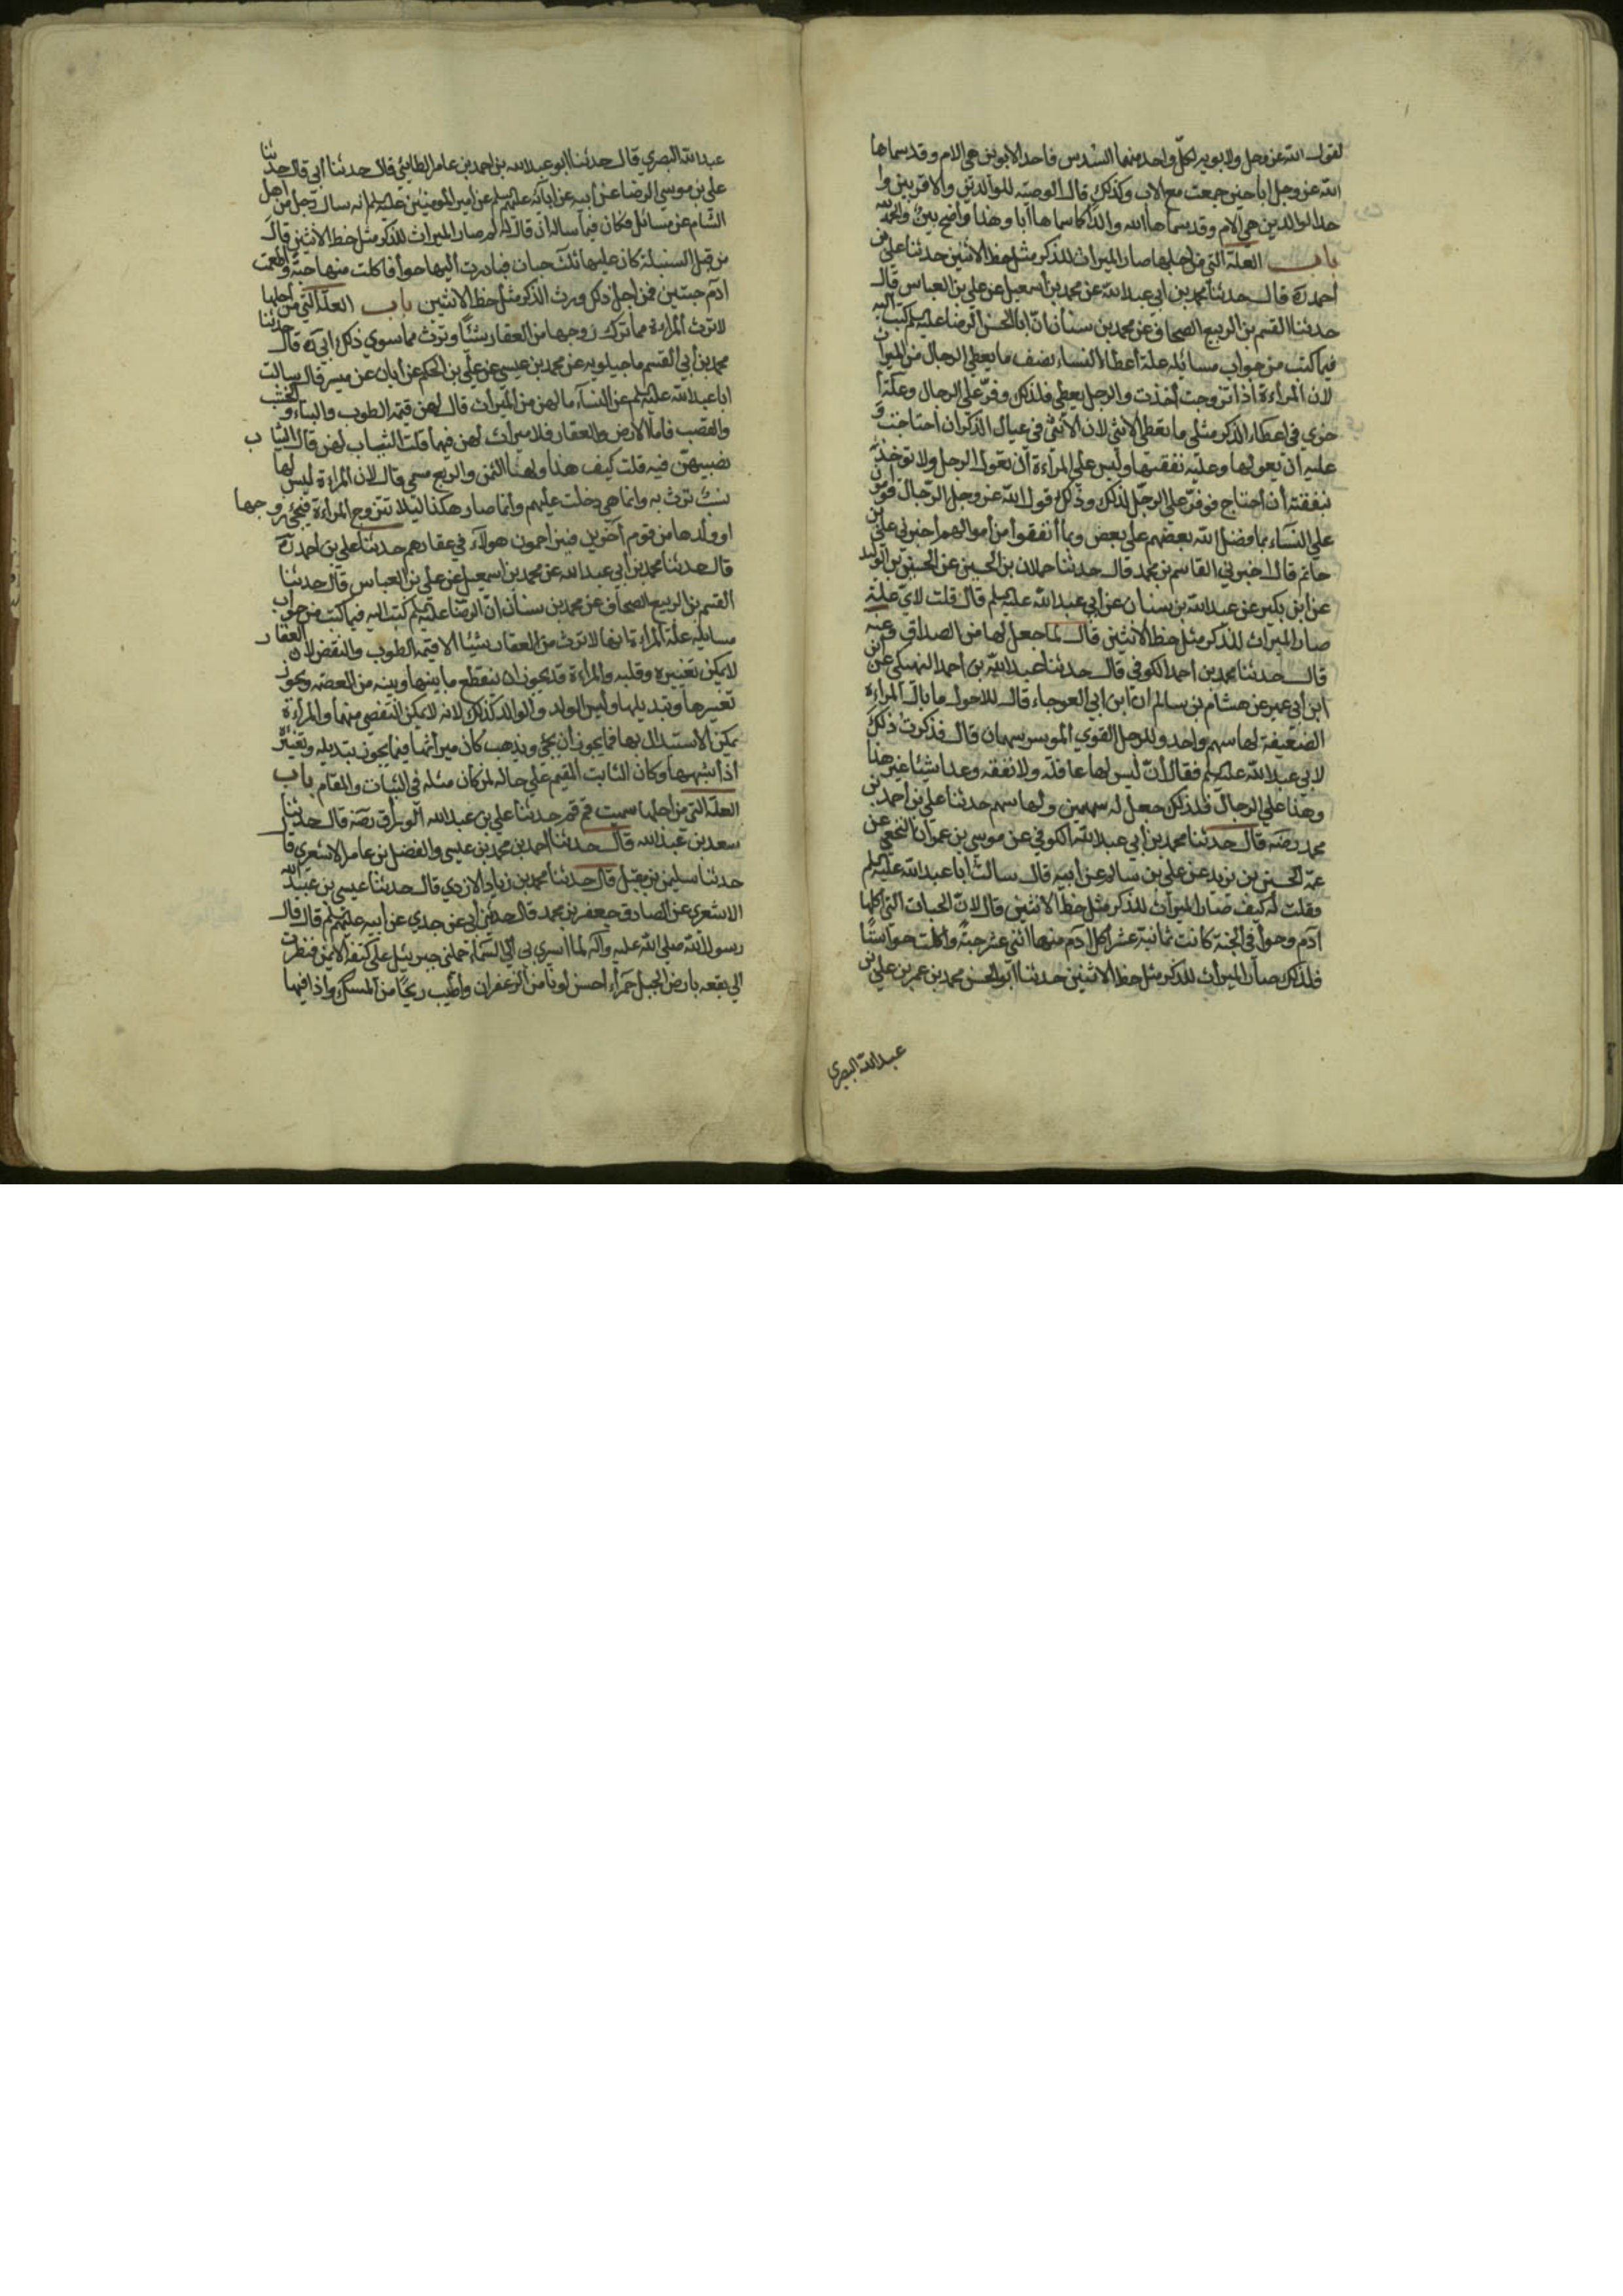 لقول الله عز وجل ولابويه لكل واحد منهما السدس فاحد الابوين هي الام وقد سماها
الله عز وجل ابا حين جمعت مع الاب وكذلك قال الوصية للوالدين والاقربين وا
حد الوالدين هي الام وقد سماها الله والدا كما سماها ابا وهذا واضح بين والحمد لله
باب العلة التي من اجلها صار الميراث للذكر مثل حظ الانثيين حدثنا علي بن
احمد ره قال حدثنا محمد بن ابي عبد الله عن محمد بن اسمعيل عن علي بن العباس قال
حدثنا القسم بن الربيع الصحاف عن محمد بن سنان ان ابا الحسن الرضا عليه السلم كتب اليه
فيما كتب من جواب مسائله علة اعطاء النساء نصف ما يعطي الرجال من الميراث
لان المراءة اذا تزوجت اخذت والرجل يعطي فلذلك وفر علي الرجال وعلة ا
خري في اعطاء الذكر مثلي ما يعطي الانثي لان الانثي في عيال الذكر ان احتاجت و
عليه ان يعولها وعليه نفقتها وليس علي المراءة ان تعول الرجل ولا توخذ
بنفقته ان احتاج فوفر علي الرجل لذلك وذلك قول الله عز وجل الرجال قوامون
علي النساء بما فضل الله بعضهم علي بعض وبما انفقوا من اموالهم اخبرني علي بن
حاتم قال اخبرني القاسم بن محمد قال حدثنا حملان بن الحسين عن الحسين بن الوليد
عن ابن بكير عن عبد الله بن سنان عن ابي عبد الله عليه السلم قال قلت لاي علة
صار الميراث للذكر مثل حظ الانثيين قال لما جعل لها من الصداق وعنه
قال حدثنا محمد بن احمد الكوفي قال حدثنا عبد الله بن احمد النهيكي عن ابن
ابن ابي عمير عن هشام بن سالم ان ابن ابي العوجاء قال للاحول ما بال المراءة
الضعيفة لها سهم واحد وللرجل القوي الموسر سهمان قال فذكرت ذلك
لابي عبد الله عليه السلم فقال ان ليس لها عاقلة ولا نفقة وعد اشيئا غير هذا
وهذا علي الرجال فلذلك جعل له سهمين ولها سهم حدثنا علي بن احمد بن
محمد رضه قال حدثنا محمد بن ابي عبد الله الكوفي عن موسي بن عمران النخعي عن
عمه الحسين بن يزيد عن علي بن سالم عن ابيه قال سالت ابا عبد الله عليه السلم
وقلت له كيف صار الميراث للذكر مثل حظ الانثيين قال لان الحبات التي اكلها
ادم وحوا في الجنة كانت ثمانية عشر اكل ادم منها اثني عشر حبة واكلت حوا ستا
فلذلك صار الميراث للذكر مثل حظ الانثيين حدثنا ابو الحسن محمد بن عمر بن علي بن
عبد الله البصري
عبد الله البصري قال حدثنا ابو عبد الله بن احمد بن عامر الطايئي قال حدثنا ابي قال حدثنا
علي بن موسي الرضا عن ابيه عن ابائه عليهم السلم عن امير المومنين عليه السلم انه ساله رجل من اهل
الشام عن مسائل فكان فيما ساله ان قال له لم صار الميراث للذكر مثل حظ الانثيين قال
من قبل السنبلة كان عليها ثلث حبات فبادرت اليها حوا فاكلت منها حبة واطعمت
ادم حبتين فمن اجل ذلك ورث الذكر مثل حظ الانثيين باب العلة التي من اجلها
لا ترث المراءة مما ترك زوجها من العقار شيئا وترث مما سوي ذلك ابي ره قال حدثنا
محمد بن ابي القسم ماجيلويه عن محمد بن عيسي عن علي بن الحكم عن ابان عن ميسر قال سالت
ابا عبد الله عليه السلم عن النساء ما لهن من الميراث قال لهن قيمة الطوب والبناء والخشب
والقصب فاما الارض والعقار فلا ميراث لهن فيها قلت الثياب لهن قال الثياب
نصيبهن فيه قلت كيف هذا ولهذا الثمن والربع مسمي قال لان المراءة ليس لها
نسب ترث به وانما هي دخلت عليهم وانما صار هكذا ليلا تتزوج المراءة فيجيء زوجها
او ولدها من قوم آخرين فيزاحمون هولاء في عقارهم حدثنا علي بن احمد ره
قال حدثنا محمد بن ابي عبد الله عن محمد بن اسمعيل عن علي بن العباس قال حدثنا
القسم بن الربيع الصحاف عن محمد بن سنان ان الرضا عليه السلم كتب اليه فيما كتب من جواب
مسايله علة المراءة انها لا ترث من العقار شيئا الا قيمة الطوب والنقض لان العقار
لا يمكن تغييره وقلبه والمراءة قد يجوز ان ينقطع ما بينها وبينه من العصمة ويجوز
تغييرها وتبديلها وليس الولد والوالد كذلك لانه لا يمكن التفصي منهما والمراءة
يمكن الاستبدال بها فما يجوز ان يجيء ويذهب كان ميراثها فيما يجوز تبديله وتغييره
اذا شبهها وكان الثابت المقيم علي حاله لمن كان مثله في الثبات والمقام باب
العلة التي من اجلها سميت قم قم حدثنا علي بن عبد الله الوراق رضه قال حدثنا
سعد بن عبد الله قال حدثنا احمد بن محمد بن عيسي والفضل بن عامر الاشعري قال
حدثنا سليمن بن مقبل قال حدثنا محمد بن زياد الازدي قال حدثنا عيسي بن عبد الله
الاشعري عن الصادق جعفر بن محمد قال حدثني ابي عن جدي عن ابيه عليهم السلم قال قال
رسول الله صلي الله عليه وآله لما اسري بي الي السماء حملني جبرئيل علي كتفه الايمن فنظرت
الي بقعة بارض الجبل حمراء احسن لونا من الزعفران واطيب ريحا من المسك واذا فيها